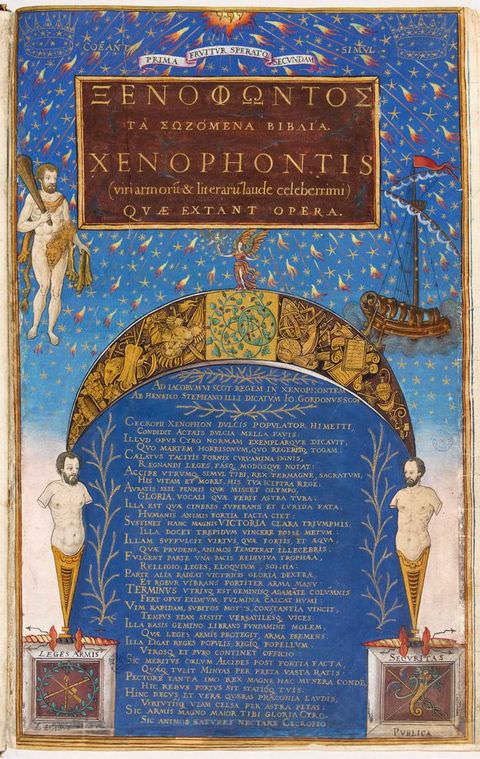 COEANT
SIMUL
PRIMA FRUITUR SPERATQ SECUNDAM
ΞΕΝΟΦΩΝΤΟΣ
ΤΑ ΣΩΖΟΜΕΝΑ ΒΙΒΛΙΑ.
XENOPHONTIS
(viri armorū & literarū laude celeberrimi)
QVÆ EXTANT OPERA.
AD IACOBUM VI SCOT. REGEM IN XENOPHONTEM
AB HENRICO STEPHANO ILLI DICATUM IO. GORDONUS SCOT
CECROPII XENOPHON DULCIS POPULATOR HIMETTI,
CONDIDIT ACTÆIS DULCIA MELLA FAVIS.
ILLUD OPUS CYRO NORMAM EXEMPLARQUE DICAVIT,
QUO MARTEM HORRISONUM, QUO REGERETQ TOGAM.
CÆLATUS TACITIS FORNIX CURVAMINA SIGNIS,
REGNANDI LEGES, FASQ, MODOSQUE NOTAT.
ACCIPE UTRUMQ, SIMUL TIBI, REX TERMAGNE, SACRATUM,
HIS VITAM ET MORES, HIS TUA SCEPTRA REGE.
AURATIS SEU PENNIS QUÆ MISCET OLYMPO,
GLORIA, VOCALI QUÆ FERIT ASTRA TUBA:
ILLA EST QUÆ CINERES SUPERANS ET LURIDA FATA,
HUMANIS ANIMIS FORTIA FACTA CIET.
SUSTINET HANC MAGNIS VICTORIA CLARA TRIUMPHIS,
ILLA DOCET TREPIDUM VINCERE POSSE METUM.
ILLAM SUFFULCIT VIRTUS, QUÆ FORTIS, ET ÆQUA
QUÆ PRUDENS, ANIMOS TEMPERAT ILLECEBRIS.
FULGENT PARTE UNA PACIS REDIVIVA TROPHÆA,
RELLIGIO, LEGES, ELOQUIUM, SOPHIA:
PARTE ALIA RADIAT VICTRICIS GLORIA DEXTRÆ,
ET ROBUR VIBRANS FORTITER ARMA MANU
TERMINUS UTRINQ EST GEMINISQ ADAMATE COLUMNIS
FERT OPUS EXIMIUM, FULMINA CALCAT HUMI:
VIM RAPIDAM, SUBITOS MOTUS, CONSTANTIA VINCIT,
TEMPUS EDAX SISTIT VERSATILESQ VICES
ILLA BASIS GEMINO LIBRANS FUNDAMINE MOLEM
QUÆ LEGES ARMIS PROTEGIT, ARMA FREMENS.
ILLA LIGAT REGES POPULIS, REGIQ POPELLUM,
VEROSQ ET PURO CONTINET OFFICIO
SIC MERITUS COELUM ALCIDES POST FORTIA FACTA,
QUÆQ TULIT MINYAS PER MARIA VASTA RATIS:
PECTORE TANTA IMO REX MAGNE HÆC MUNERA CONDE,
HIC REBUS PORTUS SIT STATIOQ TUIS.
HINC DECUS ET VERÆ QUÆRAS PRÆCONIA LAUDIS,
VIRTUTISQ VIAM CELSA PER ASTRA PETAS:
SIC ARMIS MAGNO MAIOR TIBI GLORIA CYRO,
SIC ANIMOS SATURES NECTARE CECROPIO.
LEGES ARMIS
SECURITAS
PUBLICA